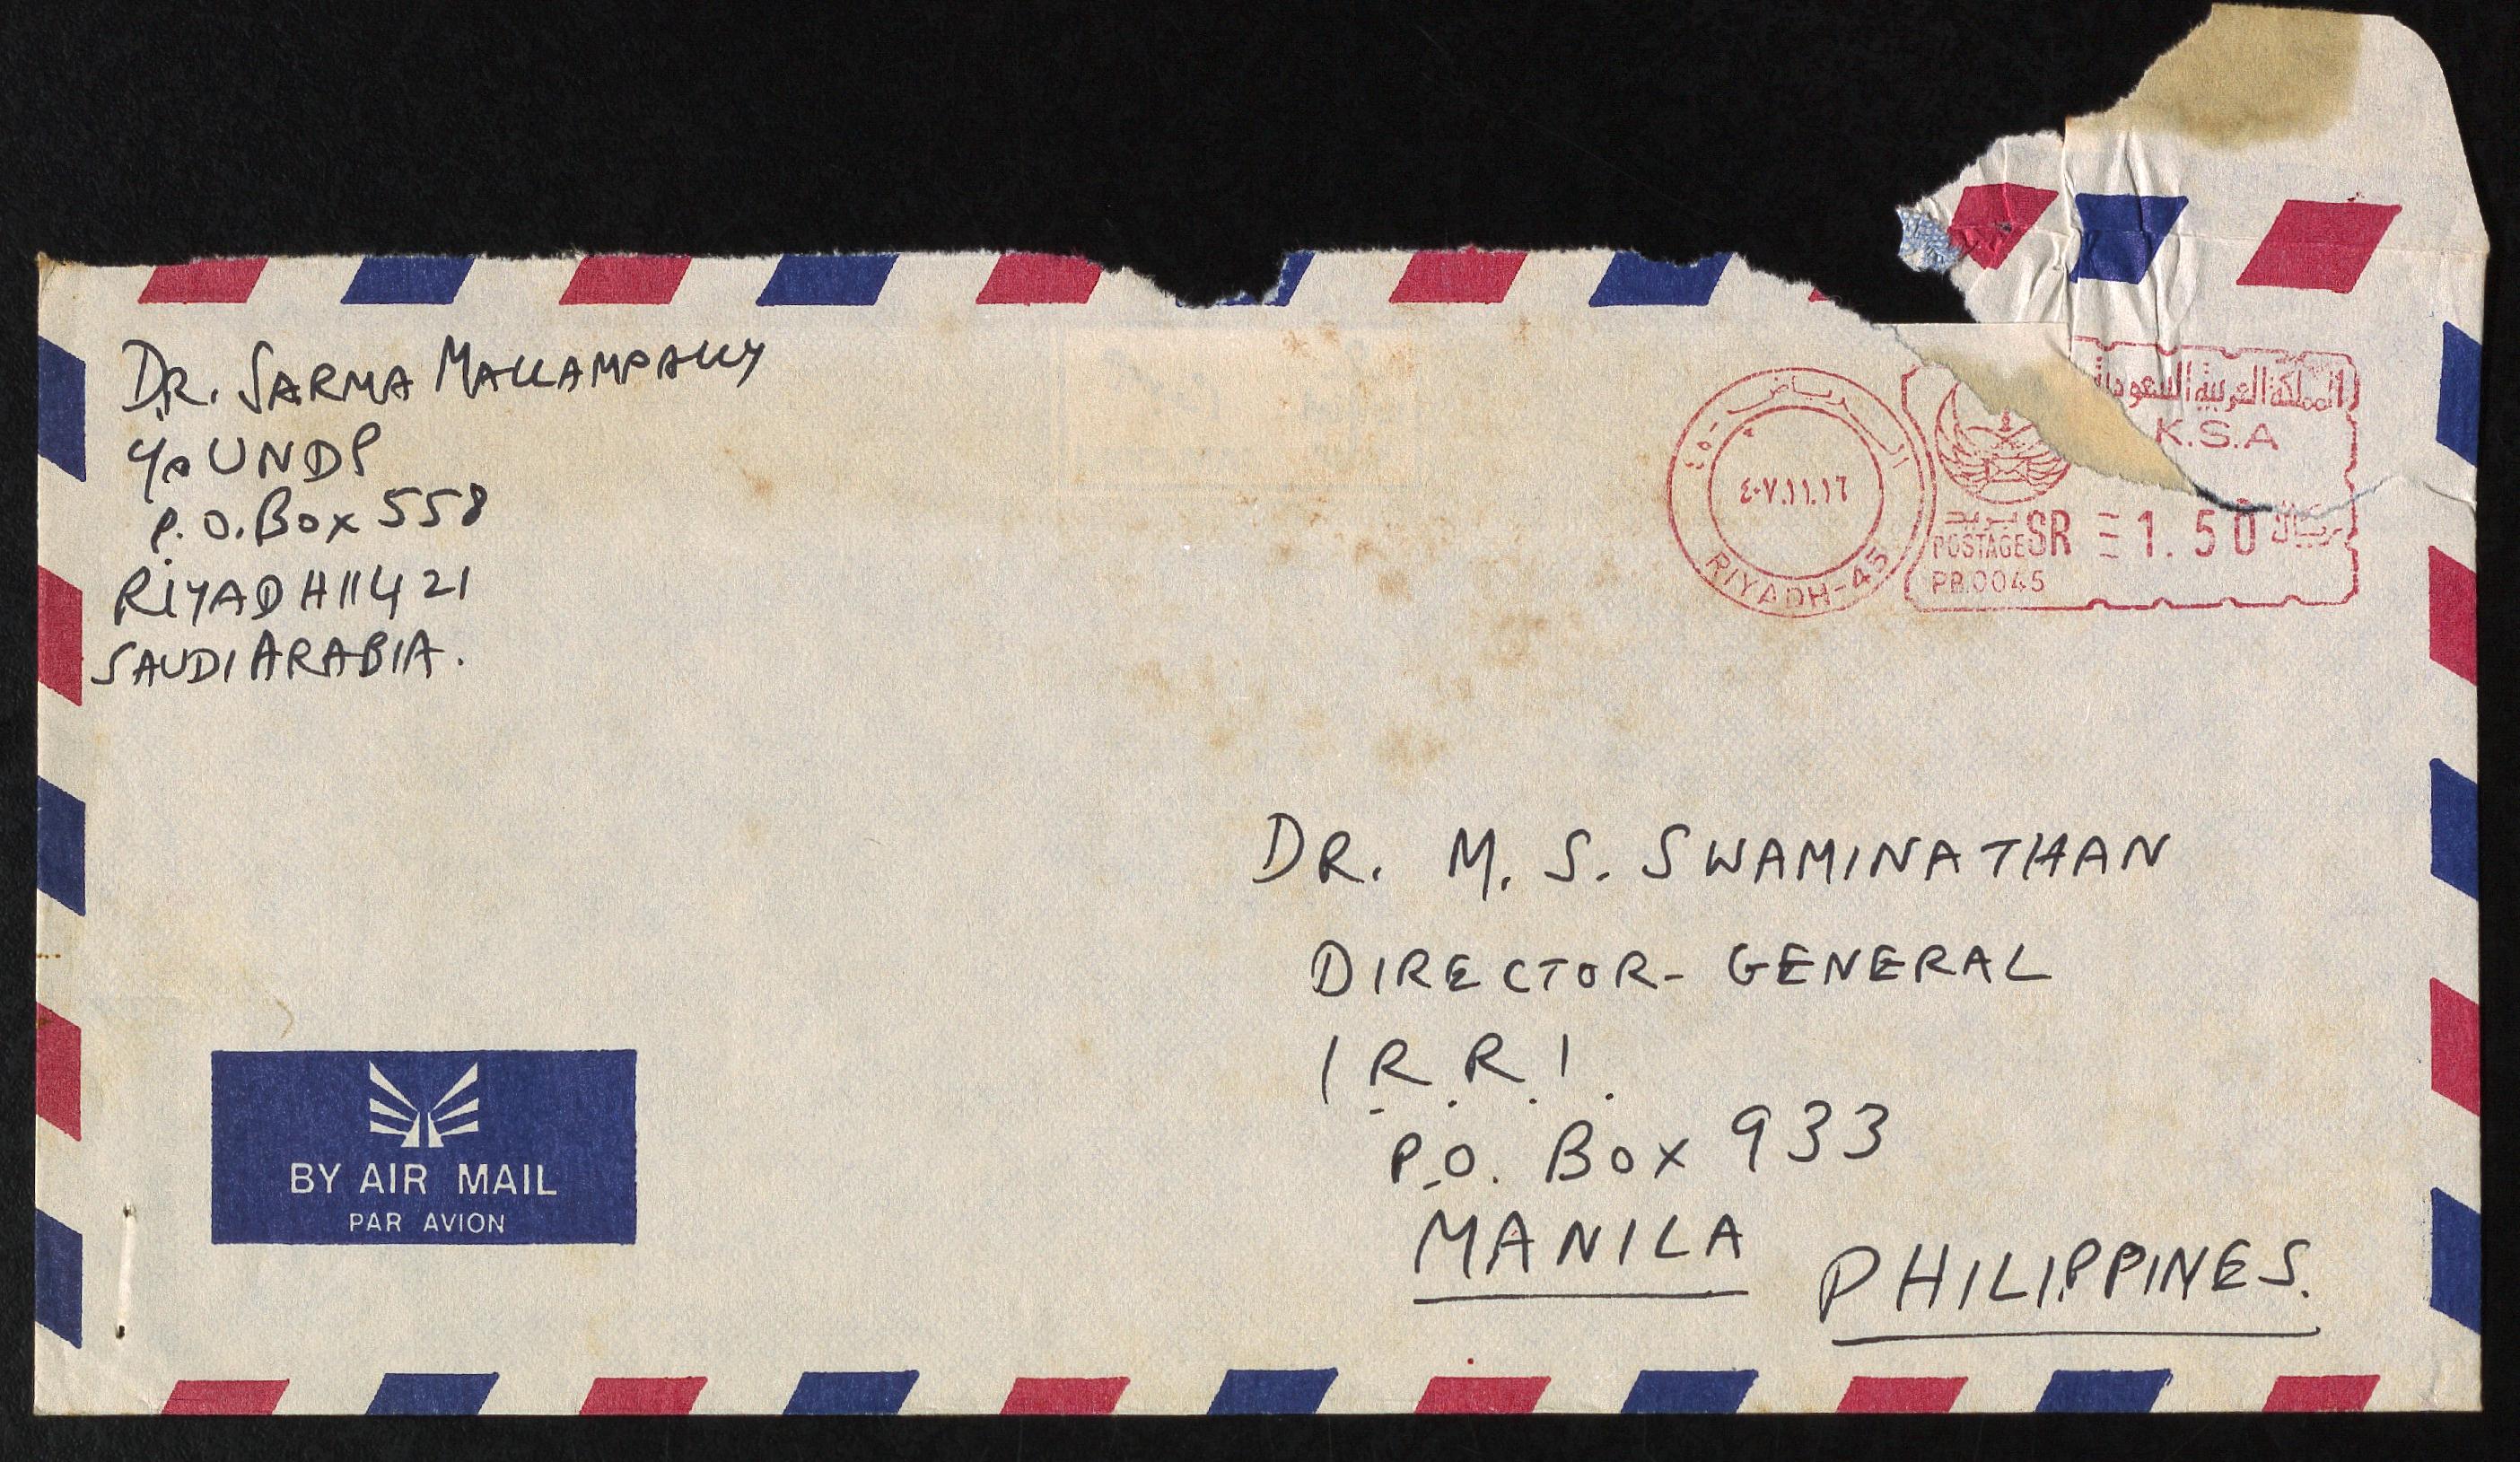 DR. SARMA MALLAMPALLY
C/o UNDP
P.O. Box 558
RIYADH 11421
SAUDI ARABIA.
الرياض - ٤٥
٤٠٧.١١.١٦
RIYADH-45
المملكة العربية السعودية
K.S.A
بريد
POSTAGE SR 1.50 ريال
PB.0045
DR. M. S. SWAMINATHAN
DIRECTOR-GENERAL
I.R.R.I.
P.O. Box 933
MANILA
PHILIPPINES.
BY AIR MAIL
PAR AVION